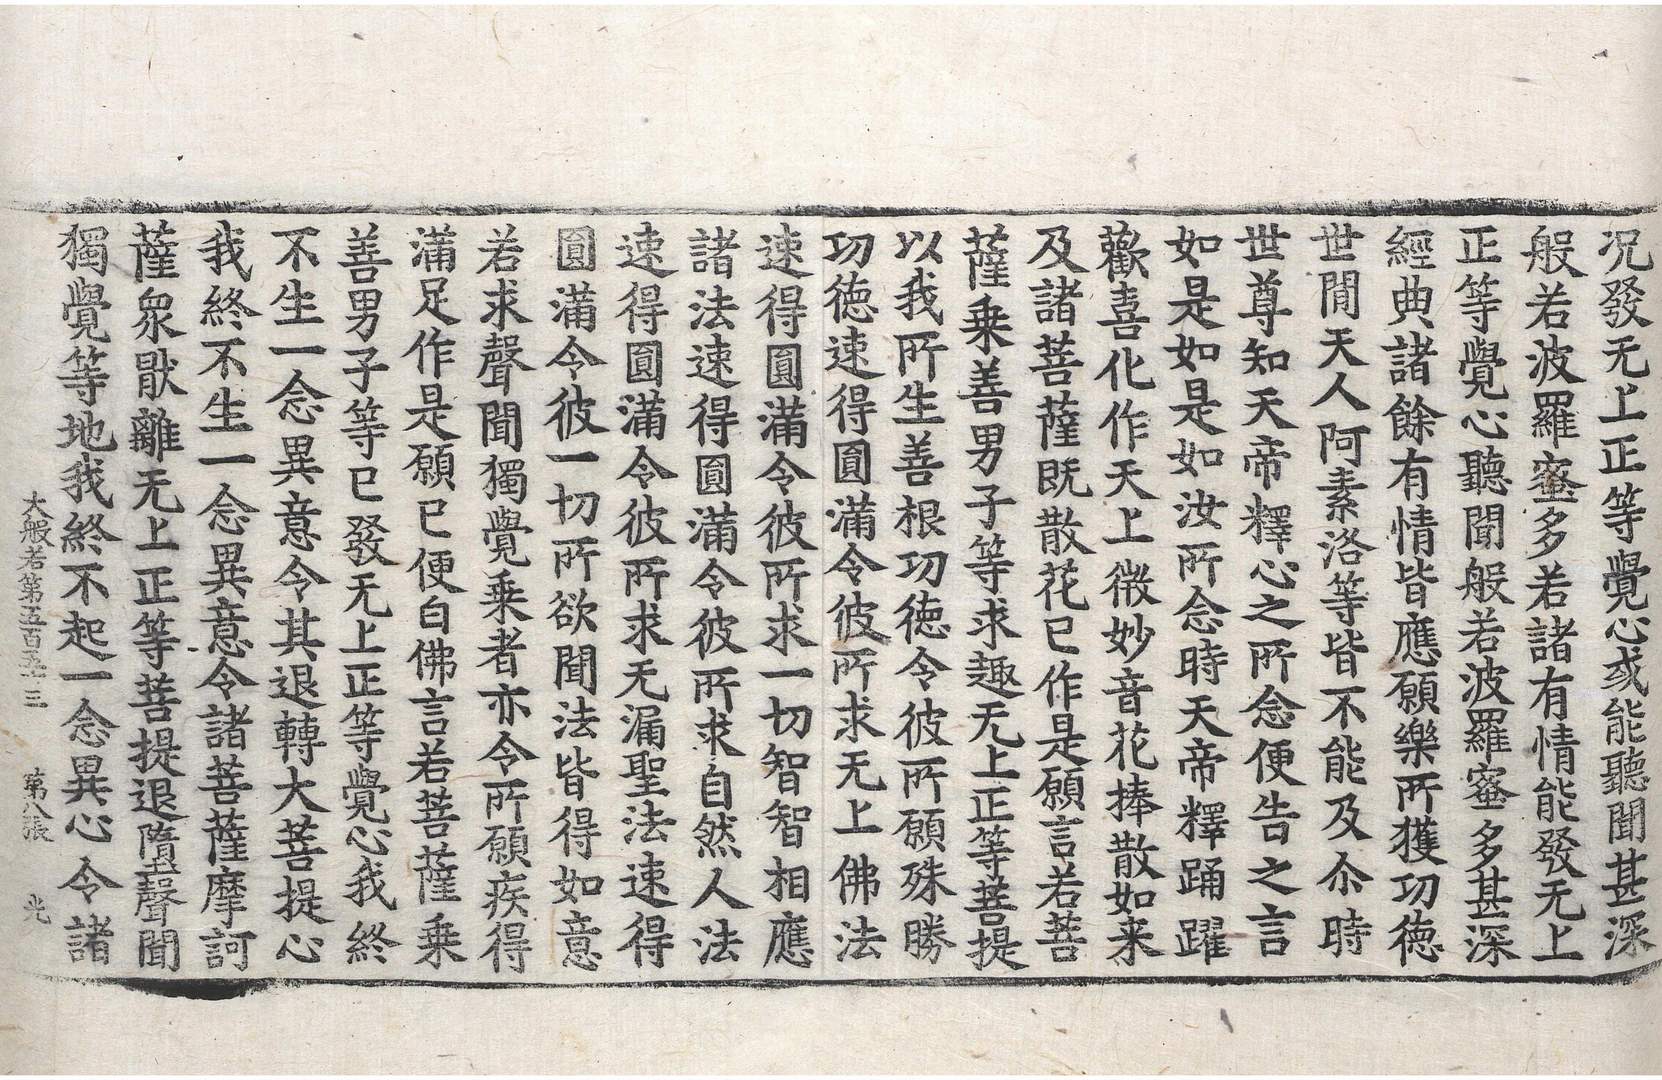 况發无上正等覺心或能聽聞甚深
般若波羅蜜多若諸有情能發无上
正等覺心聽聞般若波羅蜜多甚深
經典諸餘有情皆應願樂所獲功德
世閒天人阿素洛等皆不能及尒時
世尊知天帝釋心之所念便告之言
如是如是如汝所念時天帝釋踊躍
歡喜化作天上微妙音花捧散如来
及諸菩薩既散花已作是願言若菩
薩乗善男子等求趣无上正等菩提
以我所生善根功德令彼所願殊勝
功德速得圓滿令彼所求无上佛法
速得圓滿令彼所求一切智智相應
諸法速得圓滿令彼所求自然人法
速得圓滿令彼所求无漏聖法速得
圓滿令彼一切所欲聞法皆得如意
若求聲聞獨覺乗者亦令所願疾得
滿足作是願已便白佛言若菩薩乗
善男子等已發无上正等覺心我終
不生一念異意令其退轉大菩提心
我終不生一念異意令諸菩薩摩訶
薩衆猒離无上正等菩提退墮聲聞
獨覺等地我終不起一念異心令諸
大般若第五百五十三 第八張 光